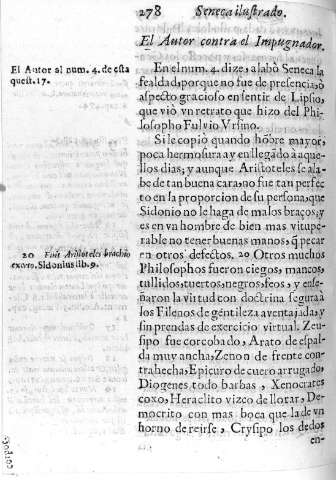 278 Seneca ilustrado.
El Autor contra el Impugnador.
El Autor al num. 4. de esta
quest. 17.
En el num. 4. dize, alabò Seneca la
fealdad, porque no fue de presencia, ò
aspecto gracioso en sentir de Lipsio,
que viò vn retrato que hizo del Phi-
losopho Fulvio Vrsino.
Si le copiò quando hõbre mayor,
poca hermosura ay en llegado à aque-
llos dias; y aunque Aristoteles se ala-
be de tan buena cara, no fue tan perfec
to en la proporcion de su persona, que
Sidonio no le haga de malos braços; y
es en vn hombre de bien mas vitupe-
rable no tener buenas manos, q̃ pecar
en otros defectos. 20 Otros muchos
20 Fuit Aristoteles brachio
exerto. Sidonius lib. 9.
Philosophos fueron ciegos, mancos,
tullidos, tuertos, negros, feos, y ense-
ñaron la virtud con doctrina segura à
los Filenos de gẽtileza aventajada, y
sin prendas de exercicio virtual. Zeu-
sipo fue corcobado, Arato de espal-
da muy ancha, Zenon de frente con-
trahecha, Epicuro de cuero arrugado,
Diogenes todo barbas, Xenocrates
coxo, Heraclito vizco de llorar, De-
mocrito con mas boca que la de vn
horno de reirse, Crysipo los dedos
en-